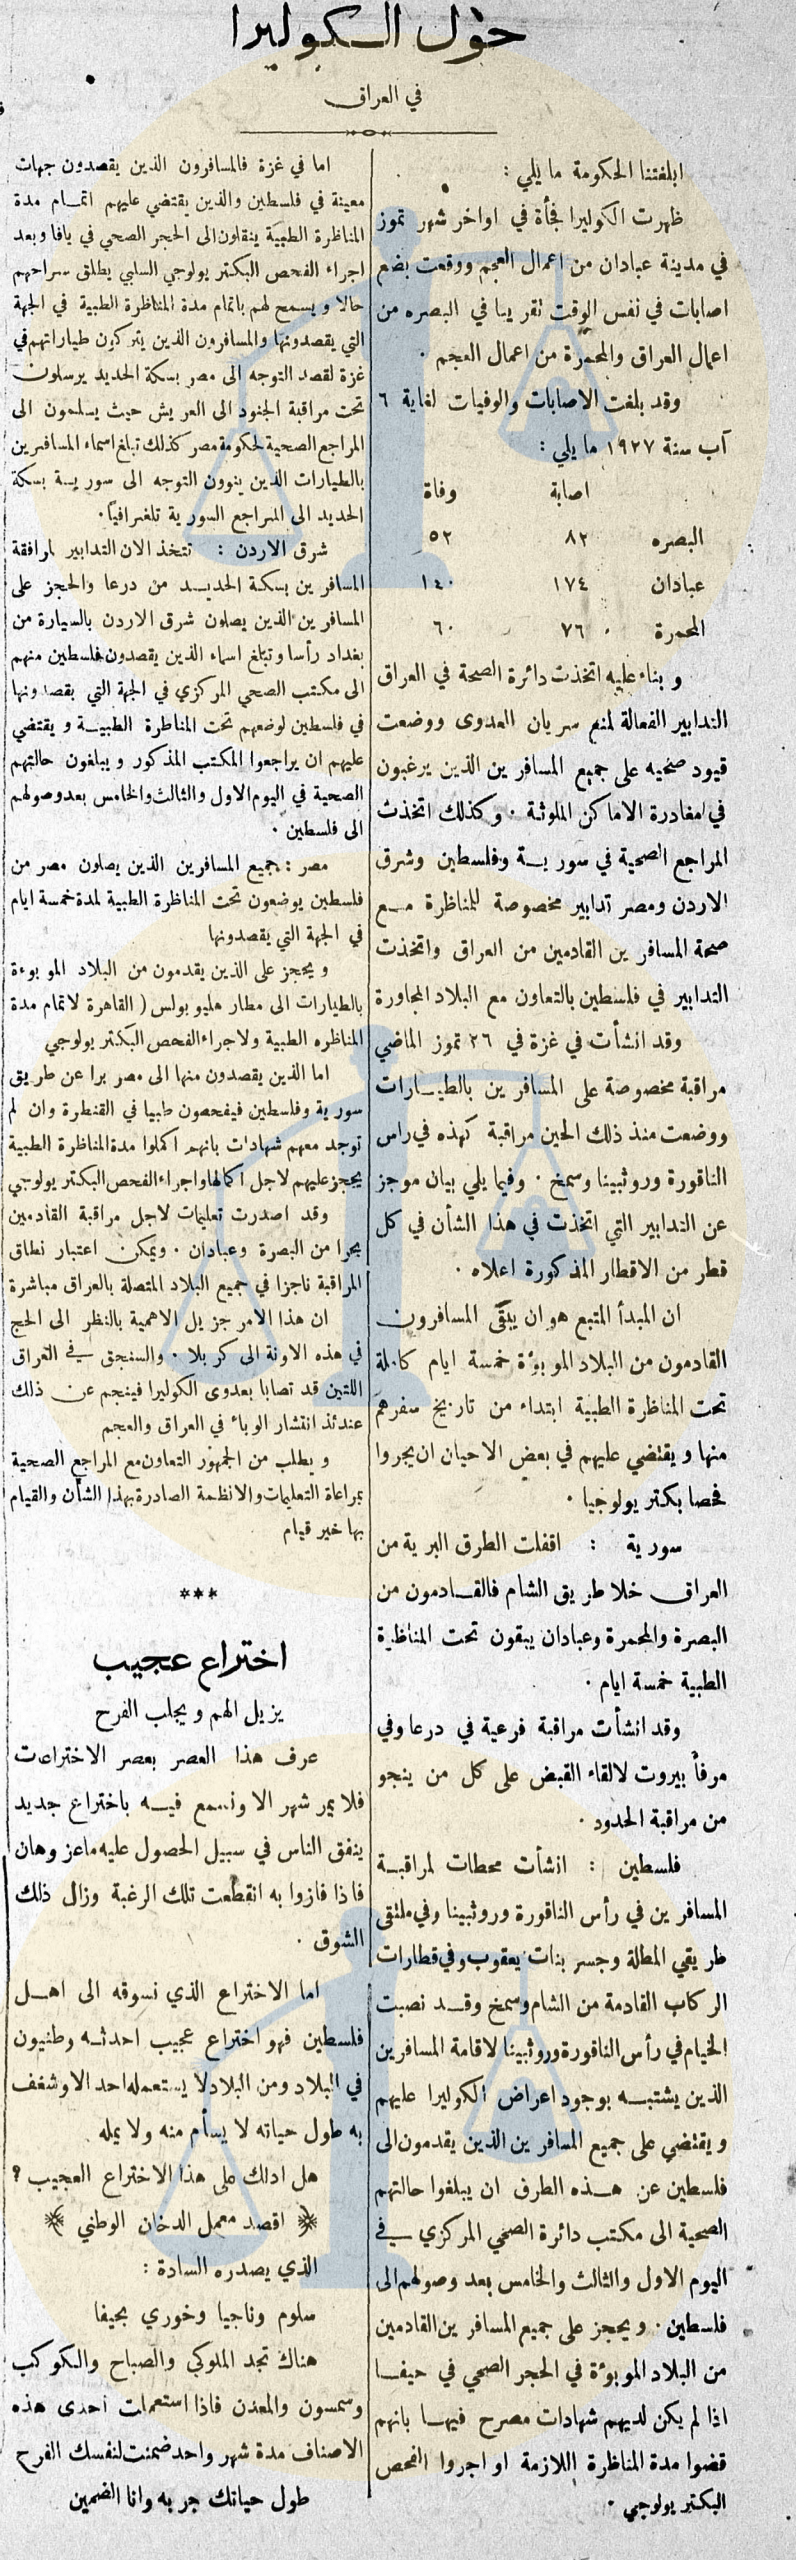 حول الكوليرا
في العراق
ابلغتنا الحكومة ما يلي :
ظهرت الكوليرا فجأة في اواخر شهر تموز
في مدينة عبادان من اعمال العجم ووقعت بضع
اصابات في نفس الوقت تقريبا في البصره من
اعمال العراق والمحمرة من اعمال العجم .
وقد بلغت الاصابات والوفيات لغاية ٦
آب سنة ١٩٢٧ ما يلي :
اصابة وفاة
البصره ٨٢ ٥٢
عبادان ١٧٤ ١٤٠
المحمرة ٧٦ ٦٠
وبناء عليه اتخذت دائرة الصحة في العراق
التدابير الفعالة لمنع سريان العدوى ووضعت
قيود صحيه على جميع المسافرين الذين يرغبون
في مغادرة الاماكن الملوثة . وكذلك اتخذت
المراجع الصحية في سورية وفلسطين وشرق
الاردن ومصر تدابير مخصوصة للمناظرة مع
صحة المسافرين القادمين من العراق واتخذت
التدابير في فلسطين بالتعاون مع البلاد المجاورة
وقد انشأت في غزة في ٢٦ تموز الماضي
مراقبة مخصوصة على المسافرين بالطيارات
ووضعت منذ ذلك الحين مراقبة كهذه في راس
الناقورة وروثبينا وسمخ . وفيما يلي بيان موجز
عن التدابير التي اتخذت في هذا الشأن في كل
قطر من الاقطار المذكورة اعلاه .
ان المبدأ المتبع هو ان يبقى المسافرون
القادمون من البلاد الموبؤة خمسة ايام كاملة
تحت المناظرة الطبية ابتداء من تاريخ سفرهم
منها ويقتضي عليهم في بعض الاحيان ان يجروا
فحصا بكتريولوجيا .
سورية : اقفلت الطرق البرية من
العراق خلا طريق الشام فالقادمون من
البصرة والمحمرة وعبادان يبقون تحت المناظرة
الطبية خمسة ايام .
وقد انشأت مراقبة فرعية في درعا وفي
مرفأ بيروت لالقاء القبض على كل من ينجو
من مراقبة الحدود .
فلسطين : انشأت محطات لمراقبة
المسافرين في رأس الناقورة وروثبينا وفي ملتقى
طريقي المطلة وجسر بنات يعقوب وفي قطارات
الركاب القادمة من الشام وسمخ وقد نصبت
الخيام في رأس الناقورة وروثبينا لاقامة المسافرين
الذين يشتبه بوجود اعراض الكوليرا عليهم
ويقتضي على جميع المسافرين الذين يقدمون الى
فلسطين عن هذه الطرق ان يبلغوا حالتهم
الصحية الى مكتب دائرة الصحي المركزي في
اليوم الاول والثالث والخامس بعد وصولهم الى
فلسطين . ويحجز على جميع المسافرين القادمين
من البلاد الموبوؤة في الحجر الصحي في حيفا
اذا لم يكن لديهم شهادات مصرح فيها بانهم
قضوا مدة المناظرة اللازمة او اجروا الفحص
البكتريولوجي .
اما في غزة فالمسافرون الذين يقصدون جهات
معينة في فلسطين والذين يقتضي عليهم اتمام مدة
المناظرة الطبية ينقلون الى الحجر الصحي في يافا وبعد
اجراء الفحص البكتريولوجي السلبي يطلق سراحهم
حالا ويسمح لهم باتمام مدة المناظرة الطبية في الجهة
التي يقصدونها والمسافرون الذين يتركون طياراتهم في
غزة لقصد التوجه الى مصر بسكة الحديد يرسلون
تحت مراقبة الجنود الى العريش حيث يسلمون الى
المراجع الصحية لحكومة مصر كذلك تبلغ اسماء المسافرين
بالطيارات الذين ينوون التوجه الى سورية بسكة
الحديد الى المراجع السورية تلغرافياً .
شرق الاردن : تتخذ الان التدابير لمرافقة
المسافرين بسكة الحديد من درعا والحجز على
المسافرين الذين يصلون شرق الاردن بالسيارة من
بغداد رأسا وتبلغ اسماء الذين يقصدون فلسطين منهم
الى مكتب الصحي المركزي في الجهة التي يقصدونها
في فلسطين لوضعهم تحت المناظرة الطبية ويقتضي
عليهم ان يراجعوا المكتب المذكور ويبلغون حالتهم
الصحية في اليوم الاول والثالث والخامس بعد وصولهم
الى فلسطين .
مصر : جميع المسافرين الذين يصلون مصر من
فلسطين يوضعون تحت المناظرة الطبية لمدة خمسة ايام
في الجهة التي يقصدونها
ويحجز على الذين يقدمون من البلاد الموبوءة
بالطيارات الى مطار هليوبولس ( القاهرة لاتمام مدة
المناظره الطبية ولاجراء الفحص البكتريولوجي
اما الذين يقصدون منها الى مصر برا عن طريق
سورية وفلسطين فيفحصون طبيا في القنطرة وان لم
توجد معهم شهادات بانهم اكملوا مدة المناظرة الطبية
يحجز عليهم لاجل اكمالها واجراء الفحص البكتريولوجي
وقد اصدرت تعليمات لاجل مراقبة القادمين
بحرا من البصرة وعبادان . ويمكن اعتبار نطاق
المراقبة ناجزا في جميع البلاد المتصلة بالعراق مباشرة
ان هذا الامر جزيل الاهمية بالنظر الى الحج
في هذه الاونة الى كربلا . والسنجق في العراق
اللتين قد تصابا بعدوى الكوليرا فينجم عن ذلك
عندئذ انتشار الوباء في العراق والعجم
ويطلب من الجمهور التعاون مع المراجع الصحية
بمراعاة التعليمات والانظمة الصادرة بهذا الشأن والقيام
بها خير قيام
***
اختراع عجيب
يزيل الهم ويجلب الفرح
عرف هذا العصر بعصر الاختراعات
فلا يمر شهر الا ونسمع فيه باختراع جديد
ينفق الناس في سبيل الحصول عليه ماعز وهان
فاذا فازوا به انقطعت تلك الرغبة وزال ذلك
الشوق .
اما الاختراع الذي نسوقه الى اهل
فلسطين فهو اختراع عجيب احدثه وطنيون
في البلاد ومن البلاد لا يستعمله احد الا وشغف
به طول حياته لا يسأم منه ولا يمله
هل ادلك على هذا الاختراع العجيب ؟
اقصد معمل الدخان الوطني
الذي يصدره السادة :
سلوم وناجيا وخوري بحيفا
هناك تجد الملوكي والصباح والكوكب
وسمسون والمعدن فاذا استعملت احدى هذه
الاصناف مدة شهر واحد ضمنت لنفسك الفرح
طول حياتك جربه وانا الضمين